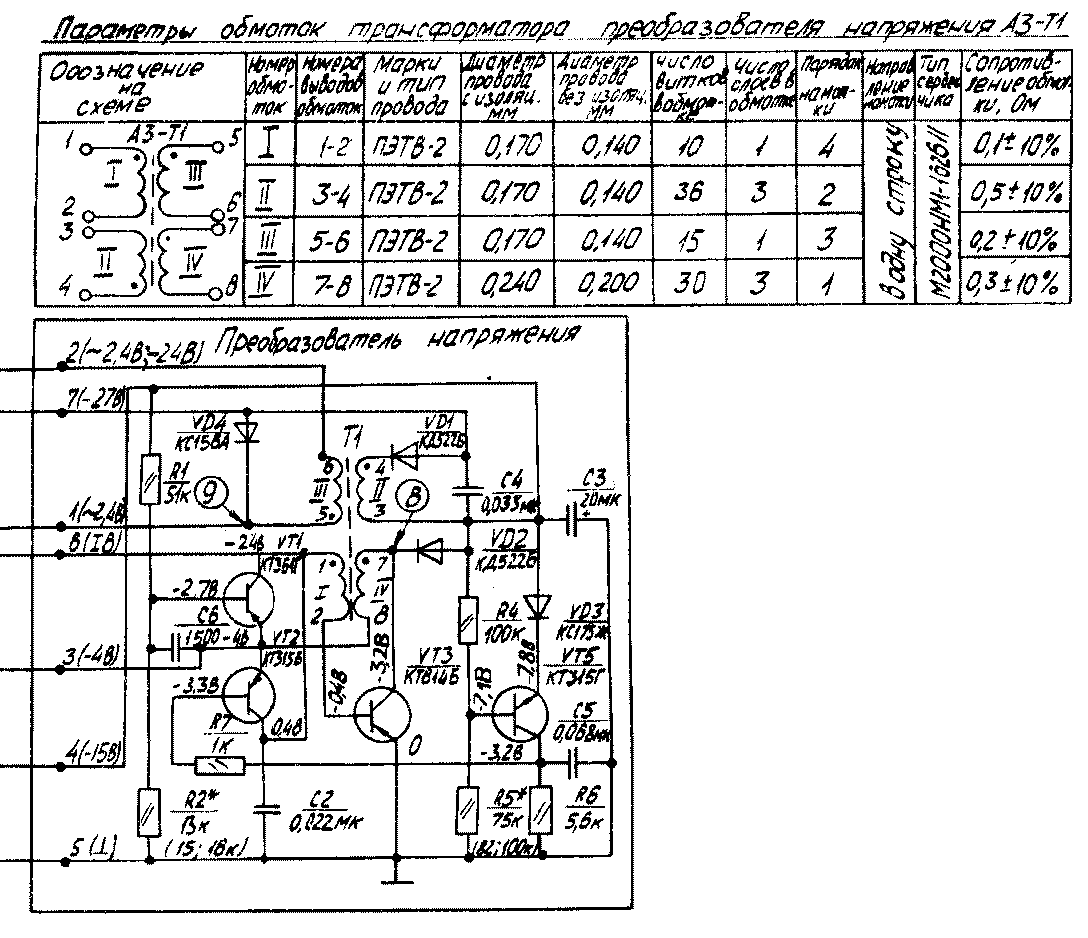 Параметры обмоток трансформатора преобразователя напряжения А3-Т1
Обозначение на схеме
Номер обмоток
Номера выводов обмоток
Марки и тип провода
Диаметр провода с изоляц. мм
Диаметр провода без изоляц. мм
Число витков в обмотке
Число слоев в обмотке
Порядок намотки
Направление намотки
Тип сердечника
Сопротивление обмотки, Ом
I 1-2 ПЭТВ-2 0,170 0,140 10 1 4 0,1±10%
II 3-4 ПЭТВ-2 0,170 0,140 36 3 2 0,5±10%
III 5-6 ПЭТВ-2 0,170 0,140 15 1 3 0,2±10%
IV 7-8 ПЭТВ-2 0,240 0,200 30 3 1 0,3±10%
В одну строку
М2000НМ1-16
А3-Т1
1 5
I III
2 6
3 7
II IV
4 8
Преобразователь напряжения
2(~2,4В;-24В)
7(-27В)
VD4
КС158А
Т1
VD1
КД522Б
R1
51к
9
6 4
III II
5 3
8
C4
0,033мк
C3
20мк
+
1(~2,4В)
8(1В)
-24В
VT1
1 7
I IV
2 8
VD2
КД522Б
-2,7В
C6
1500
-4В
VT2
КТ315Б
R4
100к
VD3
3(-4В)
-3,3В
R7
1к
0,4В
-0,4В
-3,2В
VT3
КТ814Б
0
-7,1В
-7,8В
VT5
КТ315Г
C5
0,068мк
-3,2В
4(-15В)
R2*
13к
(15; 18к)
C2
0,022мк
R5*
75к
(82; 100к)
R6
5,6к
5(⊥)